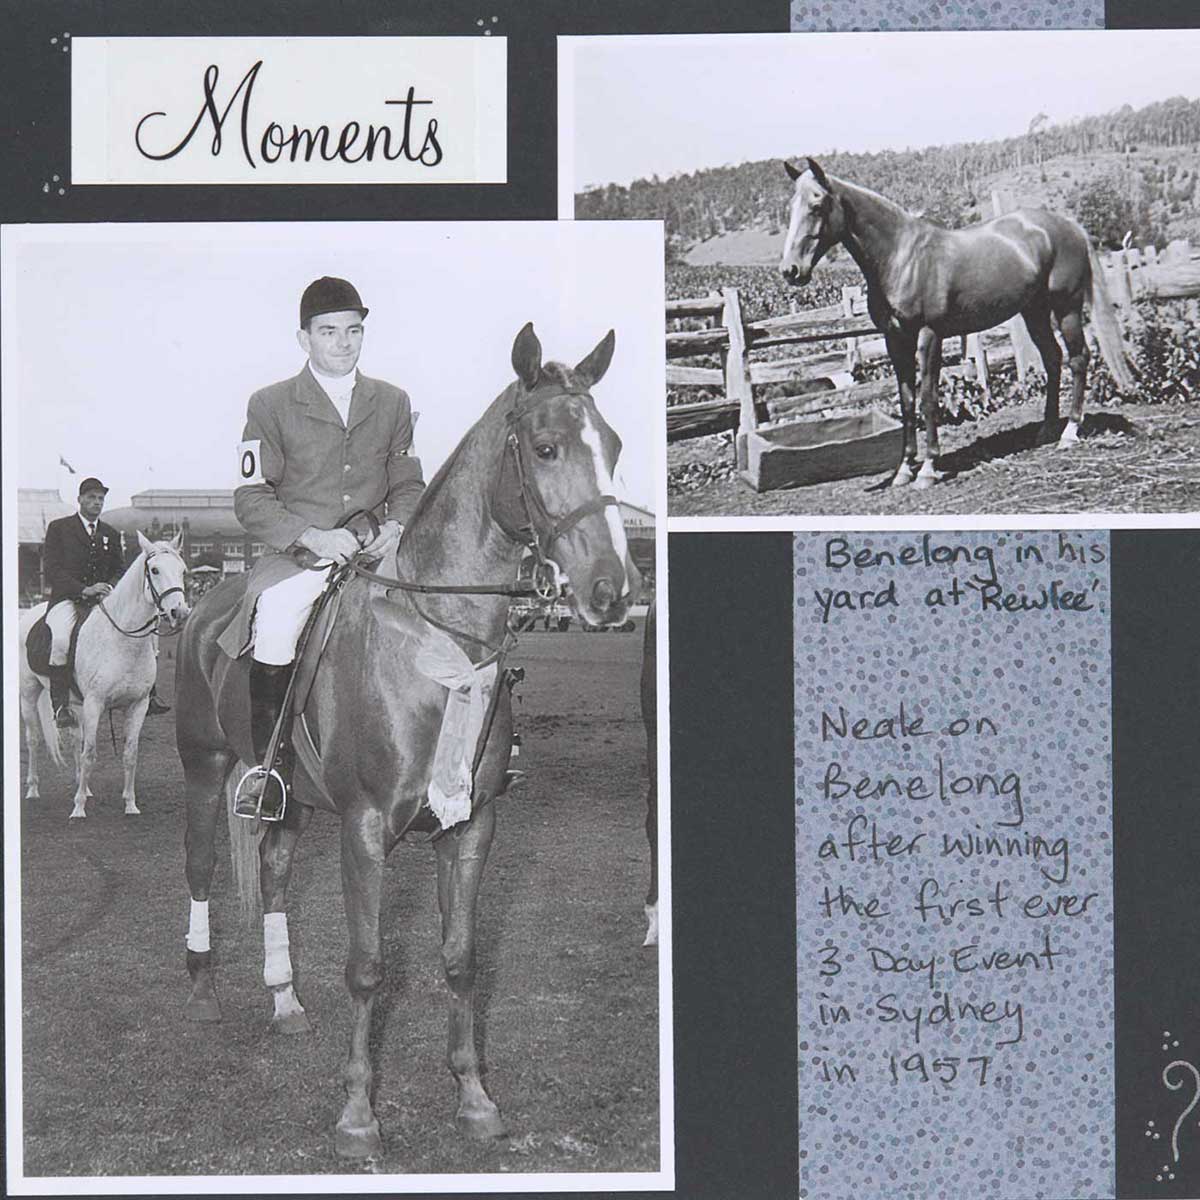 Moments
O
HALL
Benelong in his
yard at 'Rewlee'.
Neale on
Benelong
after winning
the first ever
3 Day Event
in Sydney
in 1957.